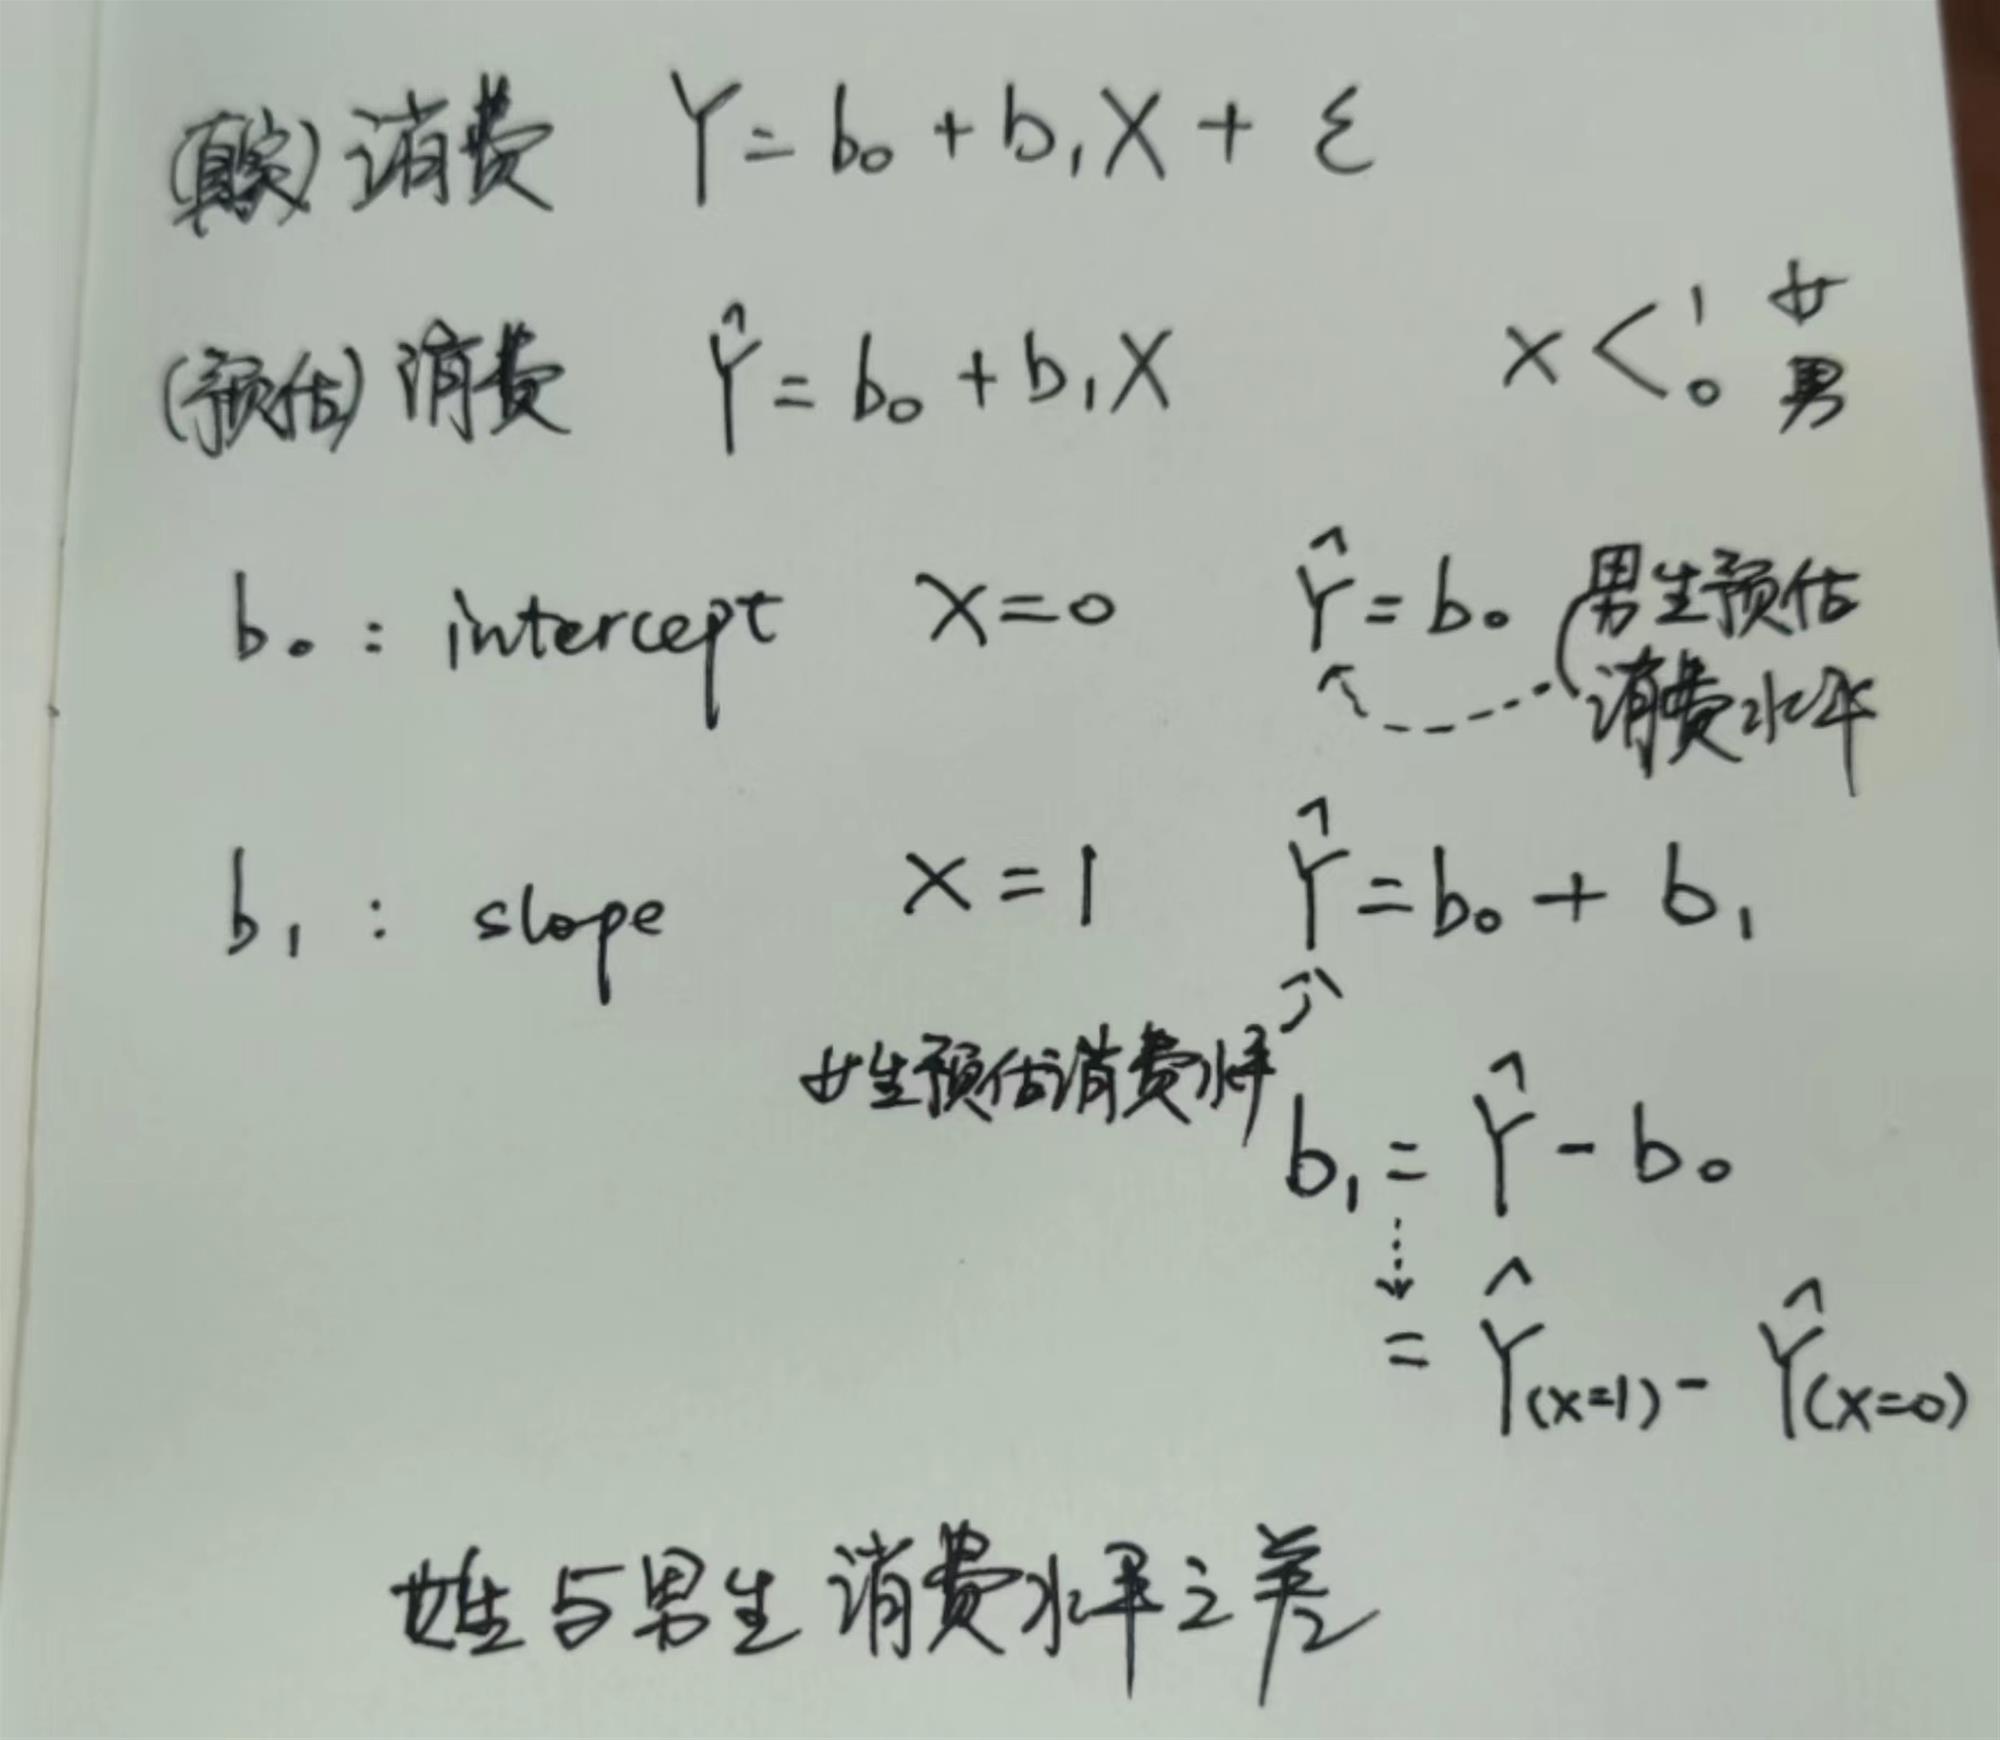 (真实)消费 Y = b₀ + b₁X + ε
(预估)消费 Ŷ = b₀ + b₁X x < 1 女
0 男
b₀ : intercept X=0 Ŷ = b₀ (男生预估
消费水平
b₁ : slope X = 1 Ŷ = b₀ + b₁
女生预估消费水平
b₁ = Ŷ - b₀
= Ŷ(x=1) - Ŷ(x=0)
女生与男生消费水平之差